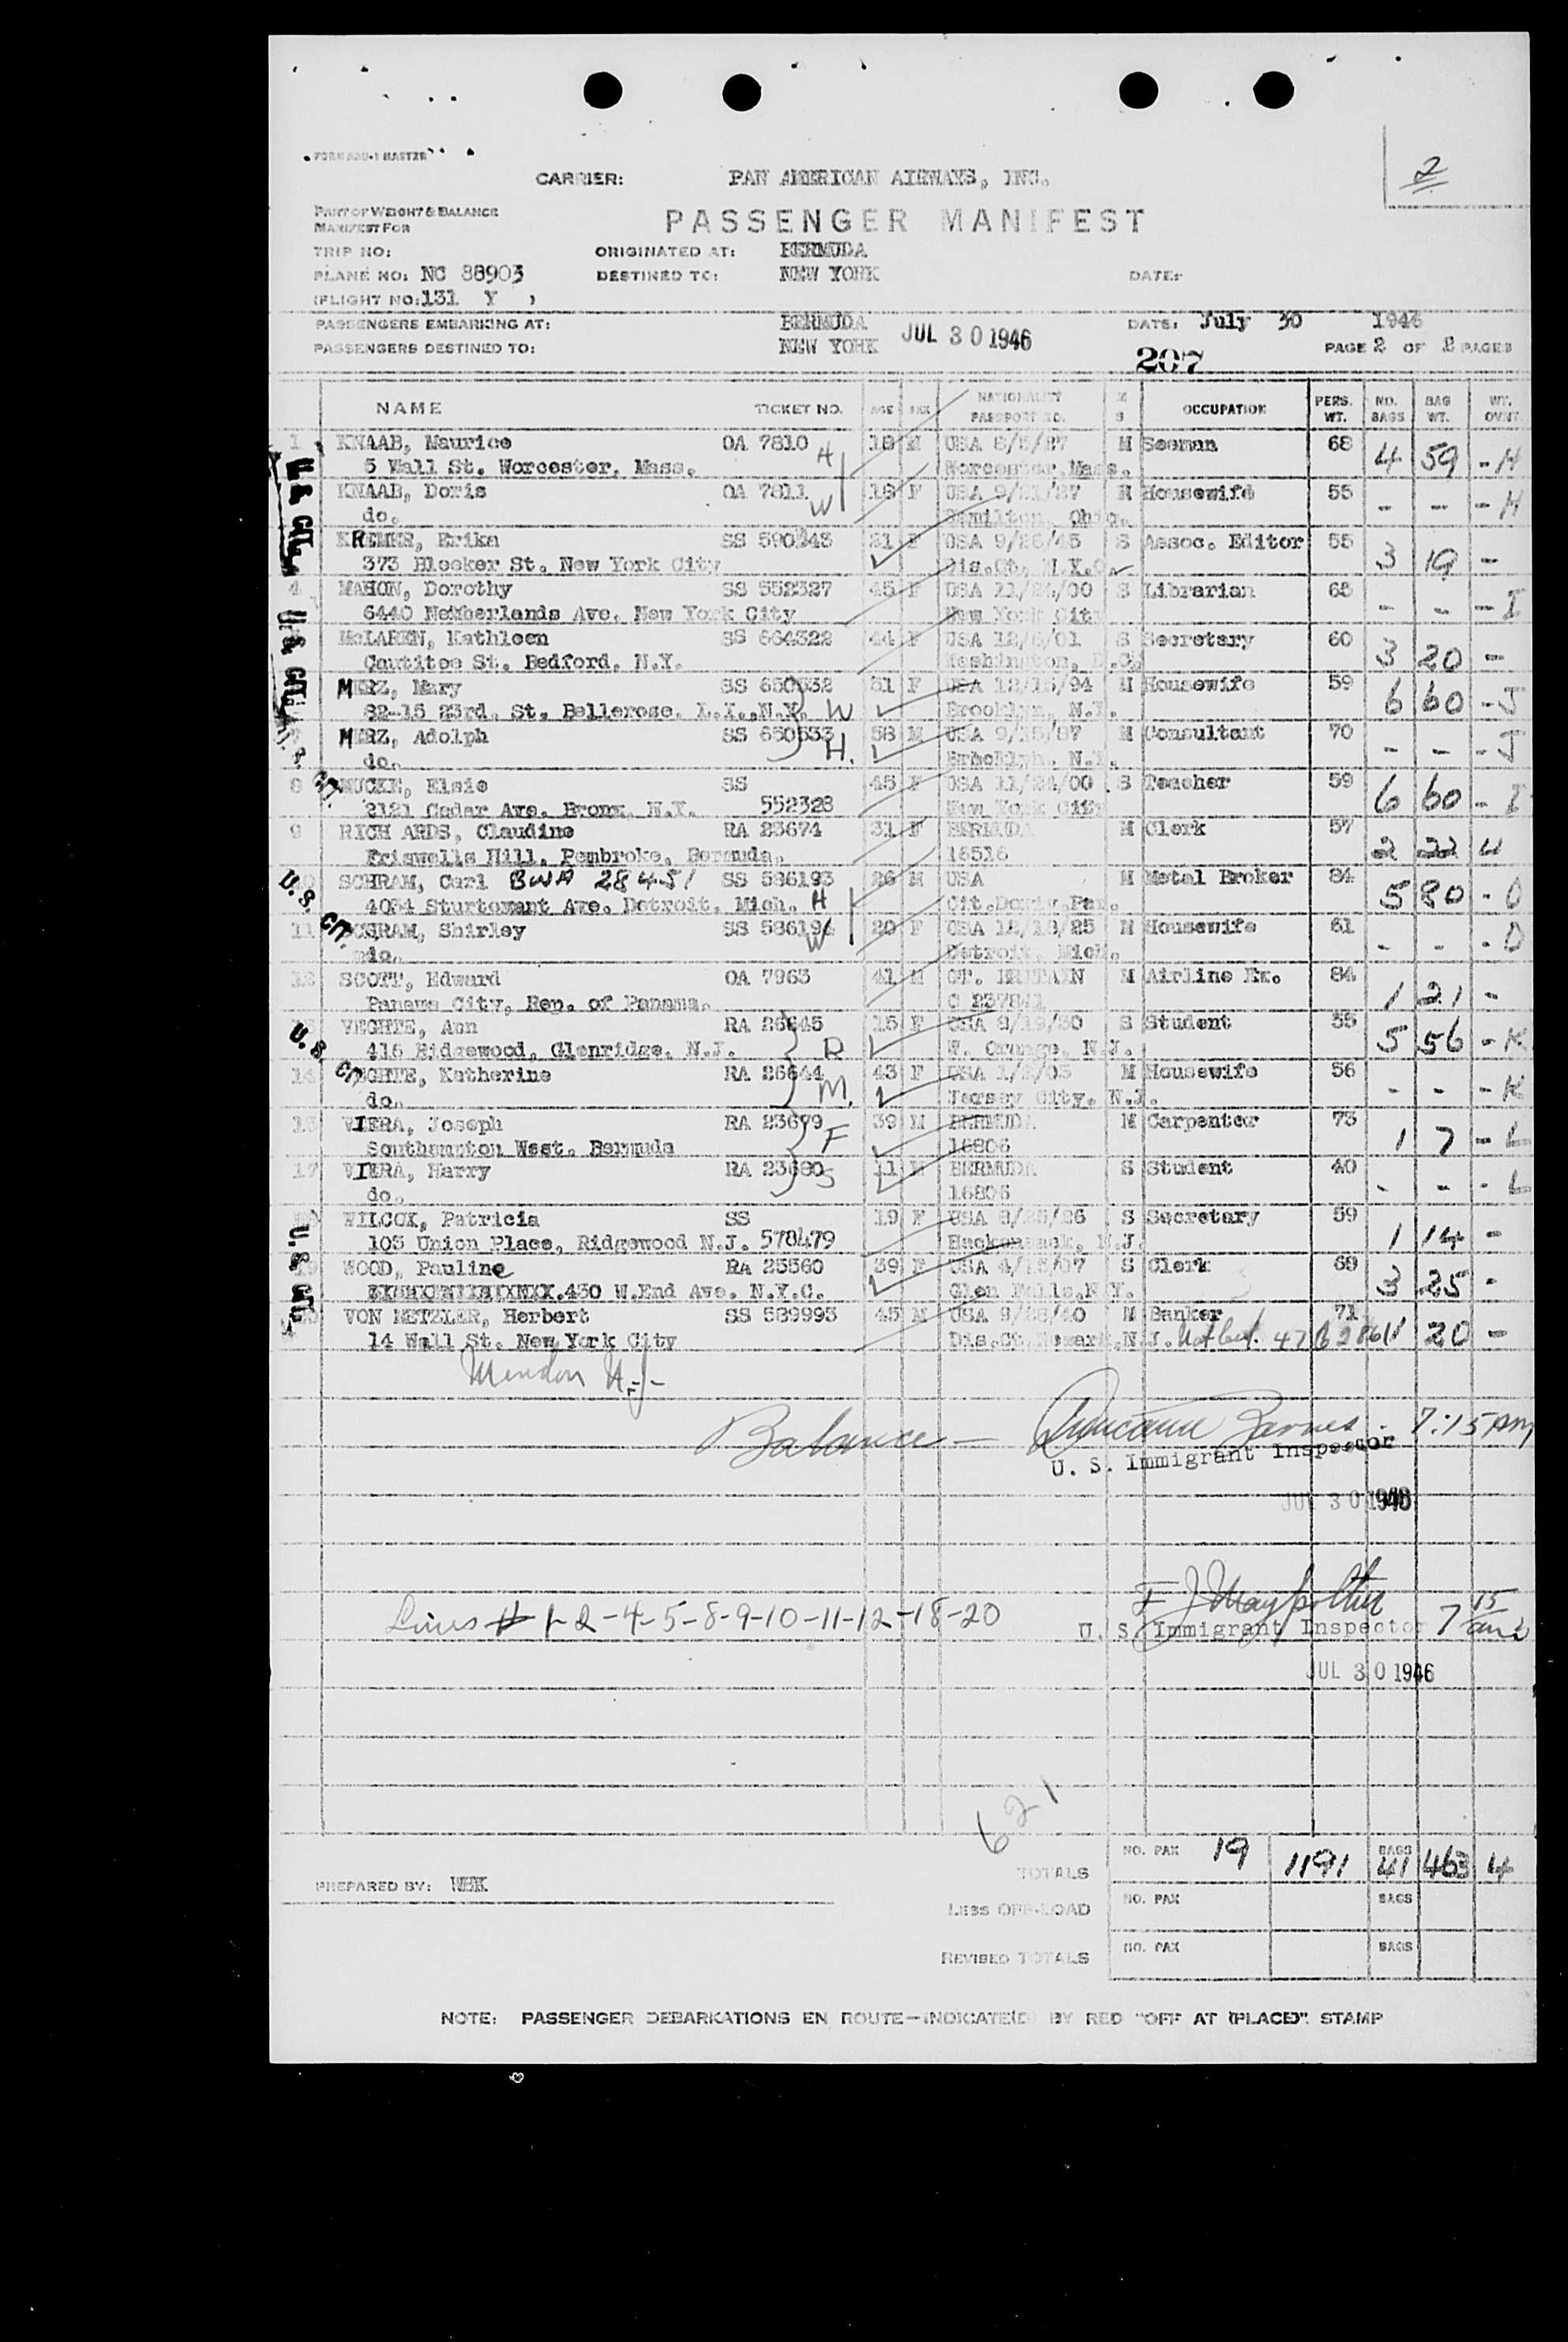 FORM ADD-1 MASTER
2
CARRIER: PAN AMERICAN AIRWAYS, INC.
PART OF WEIGHT & BALANCE
MANIFEST FOR
PASSENGER MANIFEST
TRIP NO: ORIGINATED AT: BERMUDA
PLANE NO: NC 88903 DESTINED TO: NEW YORK DATE:
(FLIGHT NO: 131 Y )
PASSENGERS EMBARKING AT: BERMUDA JUL 30 1946 DATE: July 30 1946
PASSENGERS DESTINED TO: NEW YORK 207 PAGE 2 OF 2 PAGES
NAME TICKET NO. AGE SEX NATIONALITY PASSPORT NO. M S OCCUPATION PERS. WT. NO. BAGS BAG WT. WT. OVWT.
1 KNAAB, Maurice OA 7810 H 18 M USA 8/5/27 M Seeman 68 4 59 - H
5 Wall St. Worcester, Mass. Worcester, Mass.
KNAAB, Doris OA 7811 W 18 F USA 9/21/27 M Housewife 55 - - - H
do. Hamilton, Ohio.
KREMER, Erika SS 590343 21 F USA 9/26/45 S Assoc. Editor 55 3 19 -
373 Bleeker St. New York City Dis.Ct. N.Y.C.
4 MAHON, Dorothy SS 552327 45 F USA 11/24/00 S Librarian 68 - - - I
6440 Netherlands Ave. New York City New York City
McLAREN, Kathleen SS 664322 44 F USA 12/6/01 S Secretary 60 3 20 -
Cautitoe St. Bedford, N.Y. Washington, D.C.
MERZ, Mary SS 650532 51 F USA 12/15/94 M Housewife 59 6 60 - J
82-15 23rd. St. Bellerose. L.I.,N.Y. W Brooklyn, N.Y.
MERZ, Adolph SS 650533 58 M USA 9/15/87 M Consultant 70 - - - J
do. H. Brooklyn. N.Y.
8 MUCKE, Elsie SS 45 F USA 11/24/00 S Teacher 59 6 60 - I
2121 Cedar Ave. Bronx. N.Y. 552328 New York City
9 RICH ARDS, Claudine RA 23674 31 F BERMUDA M Clerk 57 2 22 4
Friswells Hill. Pembroke, Bermuda. 16516
10 SCHRAM, Carl BWA 28451 SS 586193 26 M USA M Metal Broker 84 5 80 - O
4034 Sturtevant Ave. Detroit. Mich. H Cit.
11 SCHRAM, Shirley SS 586194 W 20 F USA 12/19/25 M Housewife 61 - - - O
do. Detroit, Mich.
12 SCOTT, Edward OA 7963 41 M GT. BRITAIN M Airline Ex. 84 1 21 -
Panama City, Rep. of Panama. C 237841
VEGHTE, Ann RA 26645 15 F USA 9/19/30 S Student 55 5 56 - K
415 Ridgewood, Glenridge. N.J. D W. Orange, N.J.
14 VEGHTE, Katherine RA 26644 43 F USA 1/2/03 M Housewife 56 - - - K
do. M. Jersey City, N.J.
VIERA, Joseph RA 23679 39 M BERMUDA M Carpenter 73 1 7 - L
Southampton West. Bermuda F 16806
17 VIERA, Harry RA 23680 S 11 M BERMUDA S Student 40 - - - L
do. 16806
WILCOX, Patricia SS 19 F USA 8/25/26 S Secretary 59 1 14 -
105 Union Place, Ridgewood N.J. 578479 Hackensack, N.J.
WOOD, Pauline RA 25560 39 F USA 4/15/07 S Clerk 69 3 25 -
430 W.End Ave. N.Y.C. Glen Falls,N.Y.
VON METZLER, Herbert SS 589993 45 M USA 9/28/40 M Banker 71 1 20 -
14 Wall St. New York City Dis.Ct.Newark.N.J.
U.S. CIT.
U.S. CIT.
U.S. CIT.
U.S. CIT.
U.S. CIT.
U.S. CIT.
Balance — Barnes - 7:15 AM
U. S. Immigrant Inspector
JUL 30 1946
Lines 1-2-4-5-8-9-10-11-12-18-20
U. S. Immigrant Inspector 7 15 am
JUL 30 1946
621
TOTALS NO. PAX 19 1191 BAGS 41 463 4
PREPARED BY: WHK
LESS OFF-LOAD NO. PAX BAGS
REVISED TOTALS NO. PAX BAGS
NOTE: PASSENGER DEBARKATIONS EN ROUTE—INDICATE(D) BY RED "OFF AT (PLACE)" STAMP